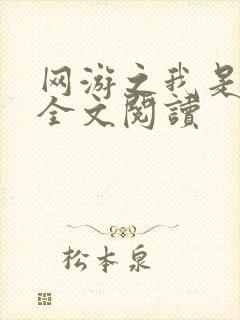 网游之我是
全文閱讀
松本泉